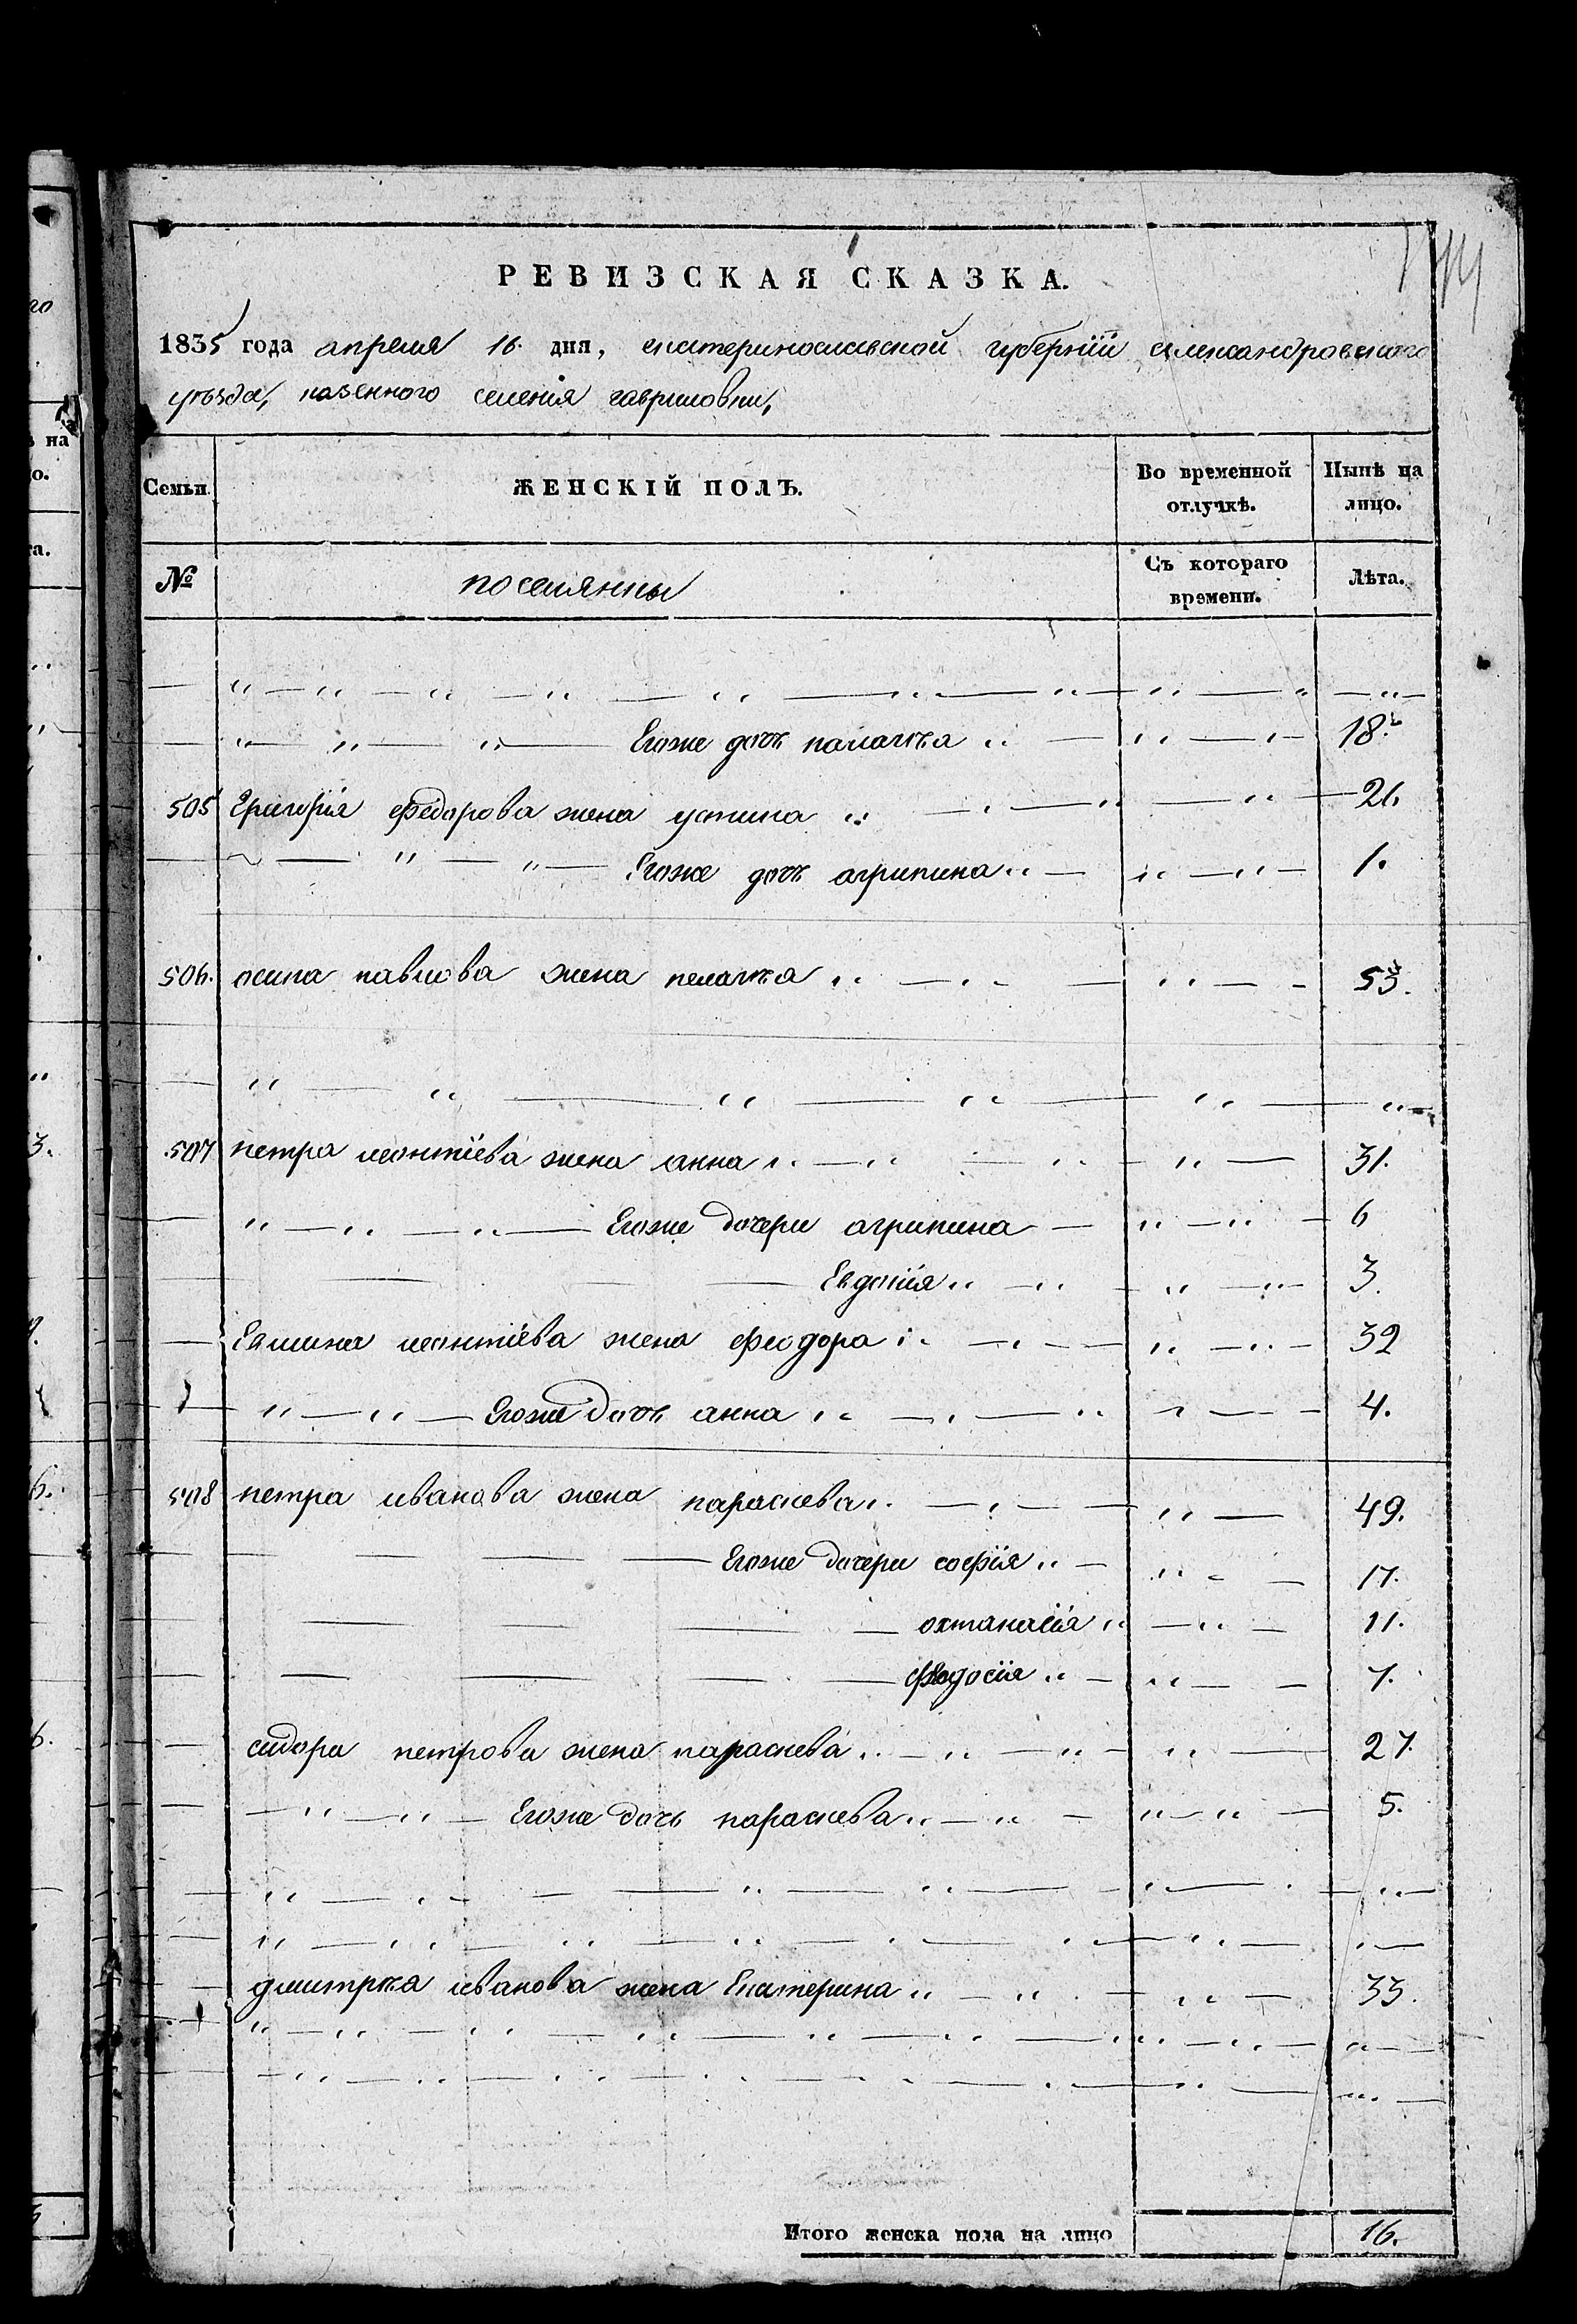 РЕВИЗСКАЯ СКАЗКА.
1835 года апреля 16. дня, екатеринославской губернїй александровского
уѣзда, казенного селенїя гавриловки,
Семьи. ЖЕНСКІЙ ПОЛЪ. Во временной отлучкѣ. Нынѣ на лицо.
№ поселянны Съ котораго времени. Лѣта.
Егоже дочь палажка 18.
505 Григорїя федорова жена устина 26.
Егоже дочь агрипина 1.
506. осипа павлова жена пелажка 53.
507 петра леонтїева жена анна 31.
Егоже дочери агрипина 6
Евдокїя 3.
леонтїева жена феодора 32
Егоже дочь анна 4.
508 петра иванова жена параскева 49.
Егоже дочери софїя 17.
11.
феодосїя 7.
сидора петрова жена параскева 27.
Егоже дочь параскева 5.
дмитрка иванова жена Екатерина 33.
Итого женска пола на лицо 16.